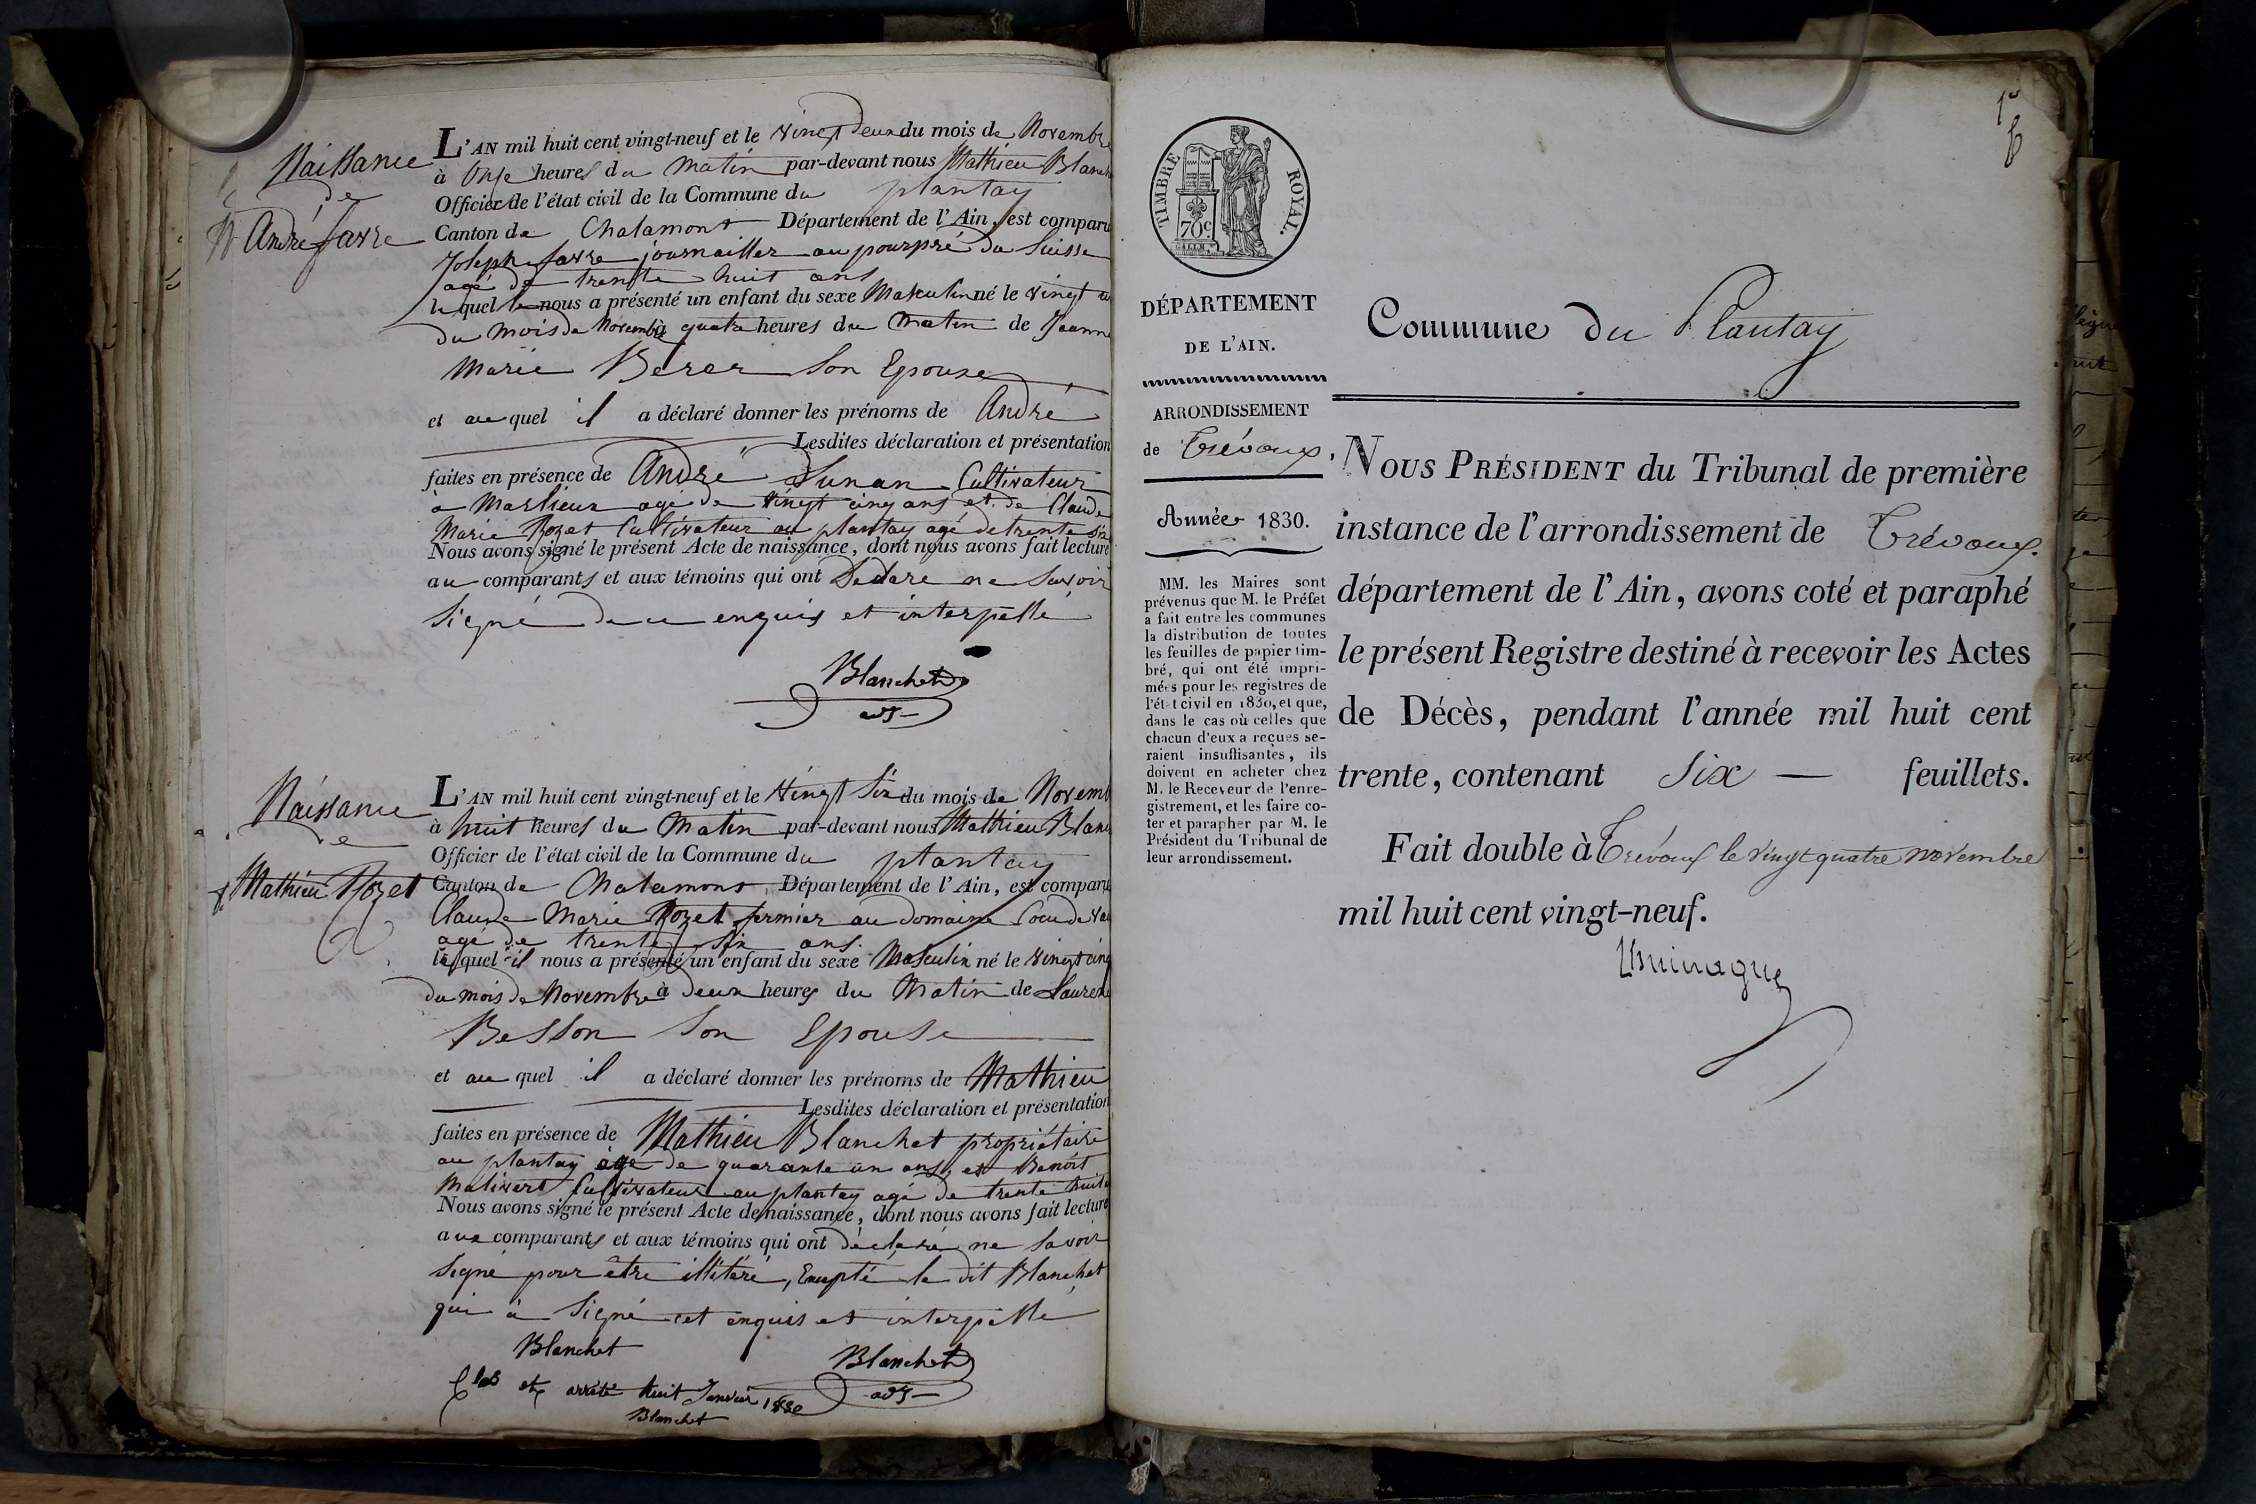 Naissance
de
André favre
L'AN mil huit cent vingt-neuf et le vingt deux du mois de Novembre
à Onze heures du Matin par-devant nous Mathieu Blanch
Officier de l'état civil de la Commune du plantay
Canton de Chalamont Département de l'Ain, est comparu
Joseph favre journailler au pourpré du Suisse
agé de trente huit ans
le quel nous a présenté un enfant du sexe Masculin né le vingt
du mois de Novembre à quatre heures du Matin de Jeanne
Marie Berer Son Epouse
et au quel il a déclaré donner les prénoms de André
Lesdites déclaration et présentation
faites en présence de André Cultivateur
à Marlieux agé de vingt cinq ans et de Claude
Marie Rozet Cultivateur au plantay agé de trente six
Nous avons signé le présent Acte de naissance, dont nous avons fait lecture
au comparants et aux témoins qui ont Déclaré ne Savoir
Signé de ce enquis et interpellé
Blanchet
adj
Naissance
de
Mathieu Rozet
L'AN mil huit cent vingt-neuf et le Vingt Six du mois de Novemb
à huit heures du Matin par-devant nous Mathieu Blan
Officier de l'état civil de la Commune du plantay
Canton de Chalamont Département de l'Ain, est comparu
Claude Marie Rozet fermier au Domaine
agé de trente six ans.
le quel il nous a présenté un enfant du sexe Masculin né le Vingt cinq
du mois de Novembre à deux heures du Matin de Laurence
Besson Son Epouse
et au quel il a déclaré donner les prénoms de Mathieu
Lesdites déclaration et présentation
faites en présence de Mathieu Blanchet propriétaire
au plantay agé de quarante un ans, et Benoit
Malivert Cultivateur au plantay agé de trente huit
Nous avons signé le présent Acte de naissance, dont nous avons fait lecture
aux comparants et aux témoins qui ont déclaré ne Savoir
Signé pour être illitéré, Excepté le dit Blanchet
qui à Signé et enquis et interpellé
Blanchet
Blanchet
adj
Clos et arrêté huit Janvier 1830
Blanchet
TIMBRE ROYAL.
70c
DÉPARTEMENT
DE L'AIN.
ARRONDISSEMENT
de Trévoux.
Année 1830.
MM. les Maires sont
prévenus que M. le Préfet
a fait entre les communes
la distribution de toutes
les feuilles de papier tim-
bré, qui ont été impri-
mées pour les registres de
l'état civil en 1830, et que,
dans le cas où celles que
chacun d'eux a reçues se-
raient insuffisantes, ils
doivent en acheter chez
M. le Receveur de l'enre-
gistrement, et les faire co-
ter et parapher par M. le
Président du Tribunal de
leur arrondissement.
Commune du Plantay
NOUS PRÉSIDENT du Tribunal de première
instance de l'arrondissement de Trévoux.
département de l'Ain, avons coté et paraphé
le présent Registre destiné à recevoir les Actes
de Décès, pendant l'année mil huit cent
trente, contenant Six feuillets.
Fait double à Trévoux le vingt quatre novembre
mil huit cent vingt-neuf.